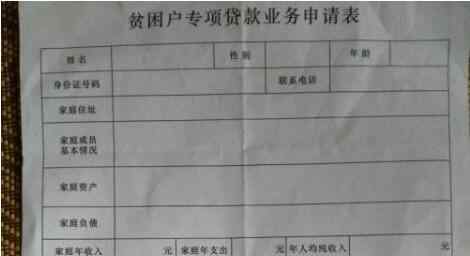 贫困户专项贷款业务申请表
姓名 性别 年龄
身份证号码 联系电话
家庭住址
家庭成员
基本情况
家庭资产
家庭负债
家庭年收入 元 家庭年支出 元 年人均纯收入 元